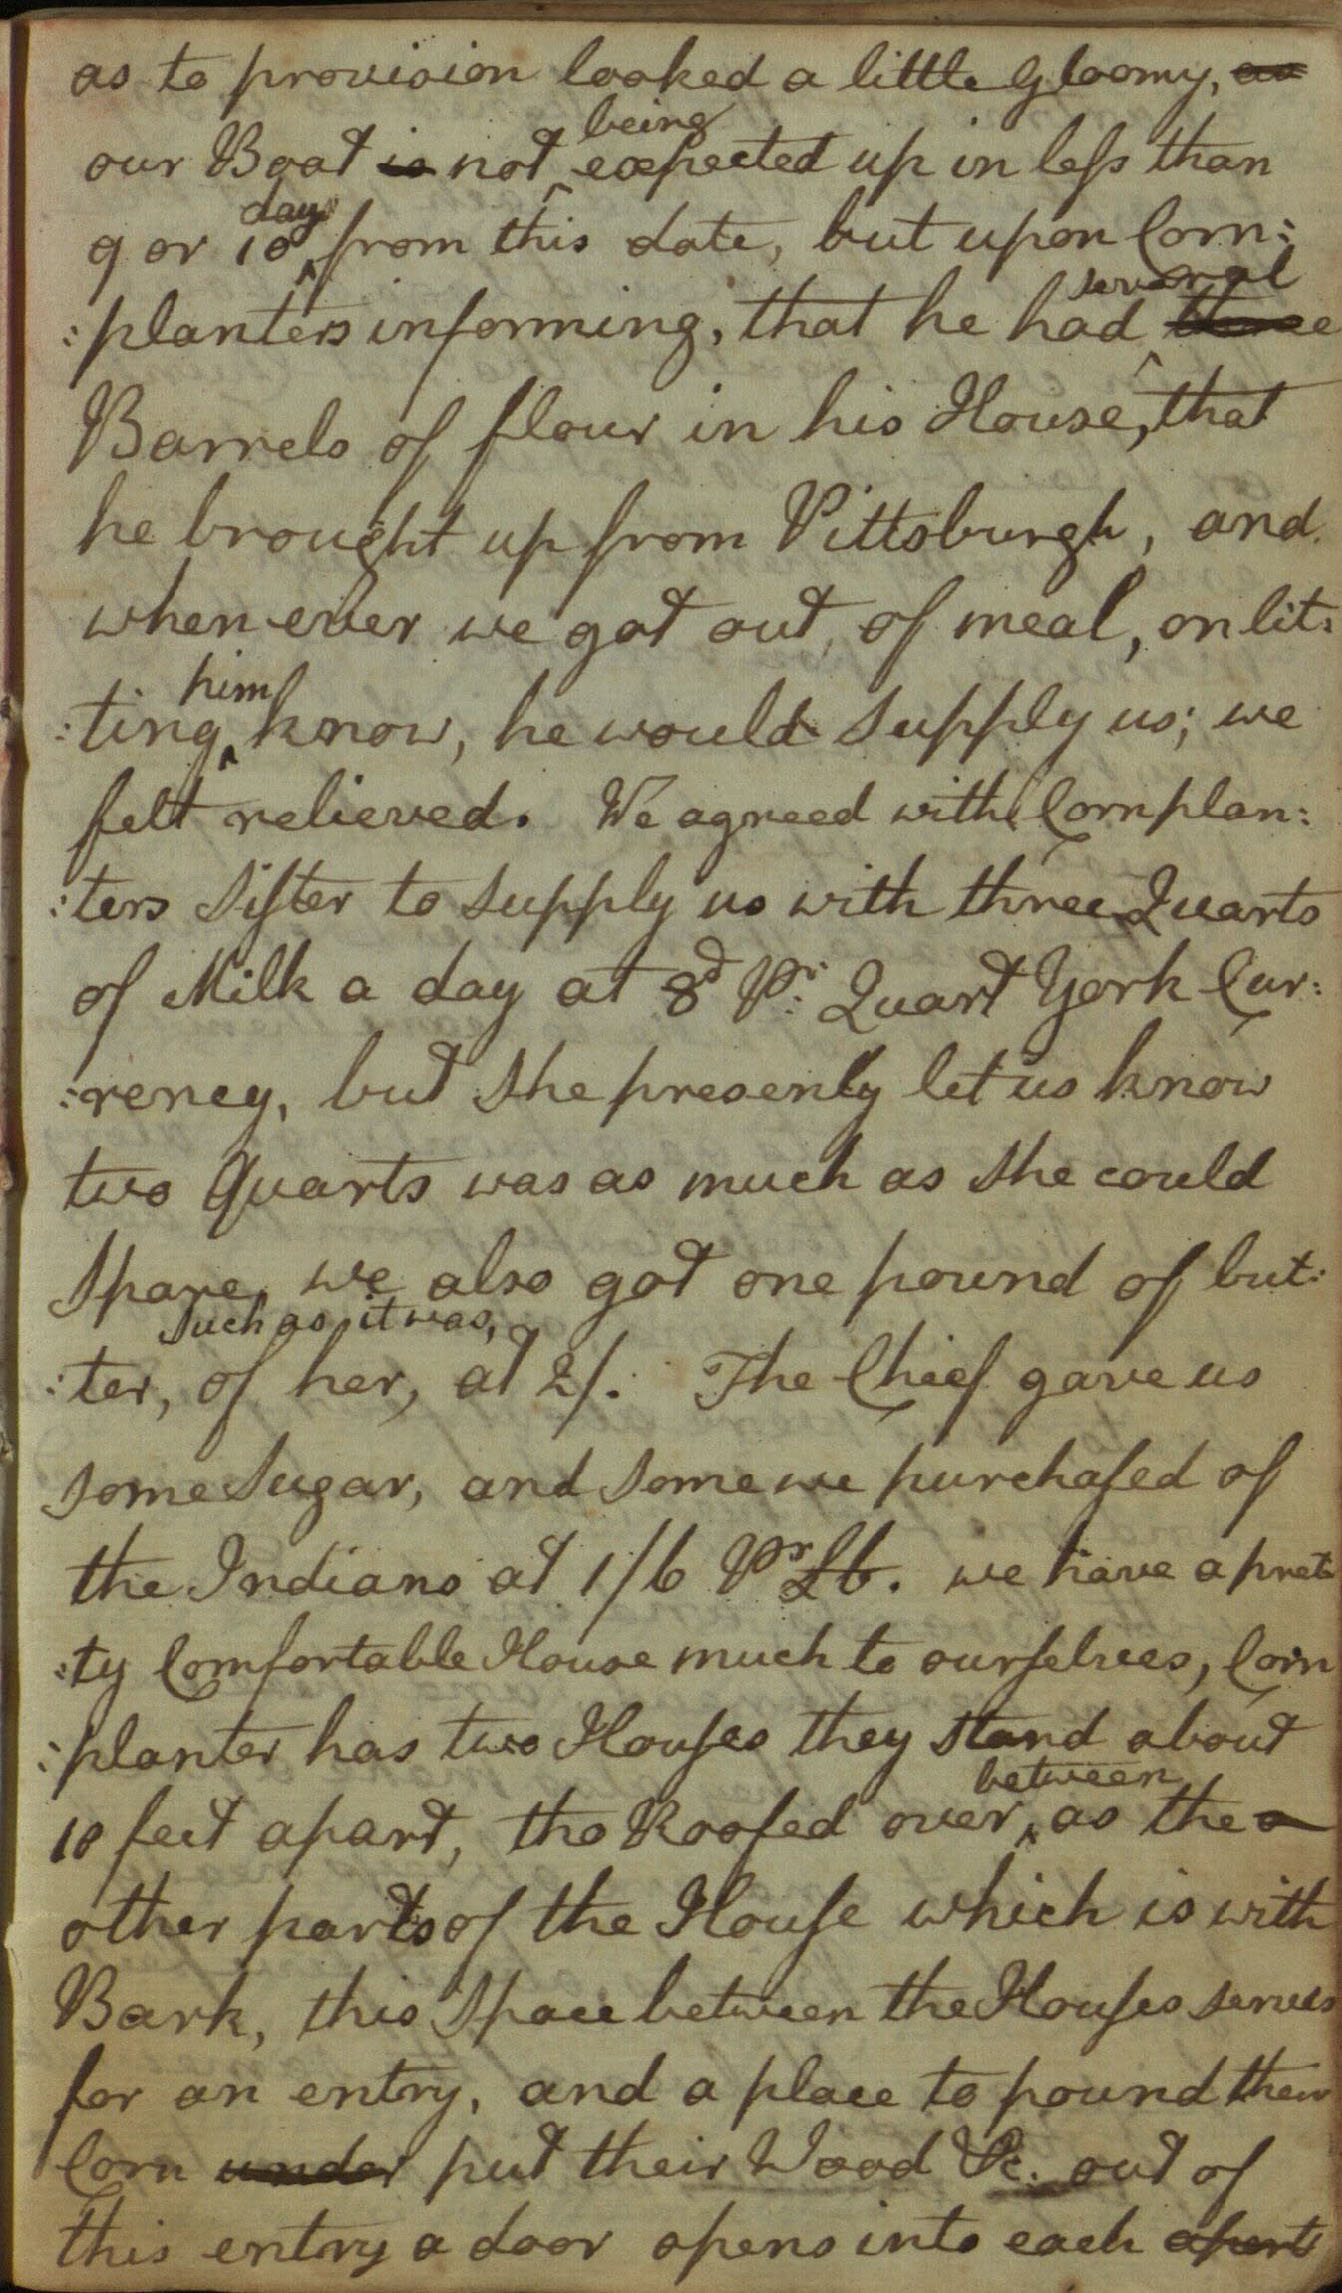 as to provision looked a little gloomy, as
our Boat is not ^being expected up in less than
9 or 10 ^days from this date, but upon Corn:
:planters informing, that he had ^several three
Barrels of flour in his House, that
he brought up from Pittsburgh, and
when ever we got out of meal, on lit:
:ting ^him know, he would Supply us; we
felt relieved. We agreed with Cornplan:
:ters Sister to Supply us with three Quarts
of Milk a day at 8d Pr. Quart York Cur:
:rency, but She presenly let us know
two Quarts was as much as She could
Spare, we also got one pound of but:
:ter, Such as it was, of her, at 2/. The Chief gave us
some Sugar, and Some we purchased of
the Indians at 1/6 Pr lb. we have a pret:
:ty Comfortable House much to ourselves, Corn
:planter has two Houses they stand about
10 feet apart, tho Roofed over ^between as the a
other parts of the House which is with
Bark, this Space between the Houses serves
for an entry, and a place to pound their
Corn under put their Wood &c. out of
this entry a door opens into each apart